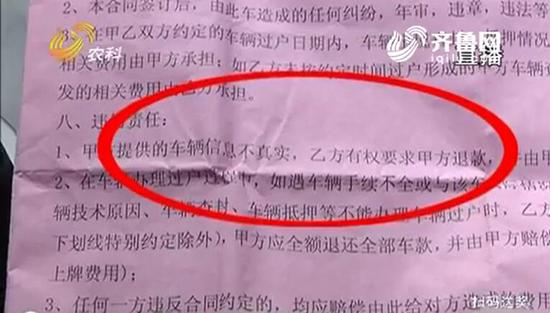 农科
齐鲁网
iqilu
直播
2、本合同签订后，由此车造成的任何纠纷，年审，违章，违法等
在甲乙双方约定的车辆过户日期内，车辆
押情况
相关费用由甲方承担；如乙方未按约定时间过户形成的甲方车辆
发的相关费用由乙方承担。
八、违约责任：
1、甲方提供的车辆信息不真实，乙方有权要求甲方退款，
由
2、在车辆办理过户过程中，如遇车辆手续不全或与该车
情况
辆技术原因、车辆查封、车辆抵押等不能办理车辆过户时，乙方
下划线特别约定除外），甲方应全额退还全部车款，并由甲方赔偿
上牌费用）；
3、任何一方违反合同约定的，均应赔偿由此给对方造成的费用
扫码送奖